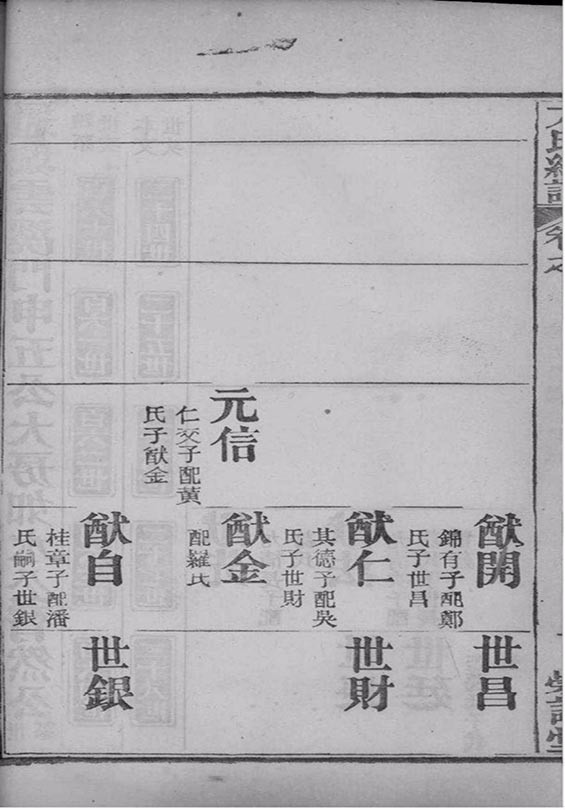 卷之
元信
仁交子配黃
氏子猷金
猷開
錦有子配鄭
氏子世昌
猷仁
其德子配吳
氏子世財
猷金
配羅氏
猷白
桂章子配潘
氏嗣子世銀
世昌
世財
世銀